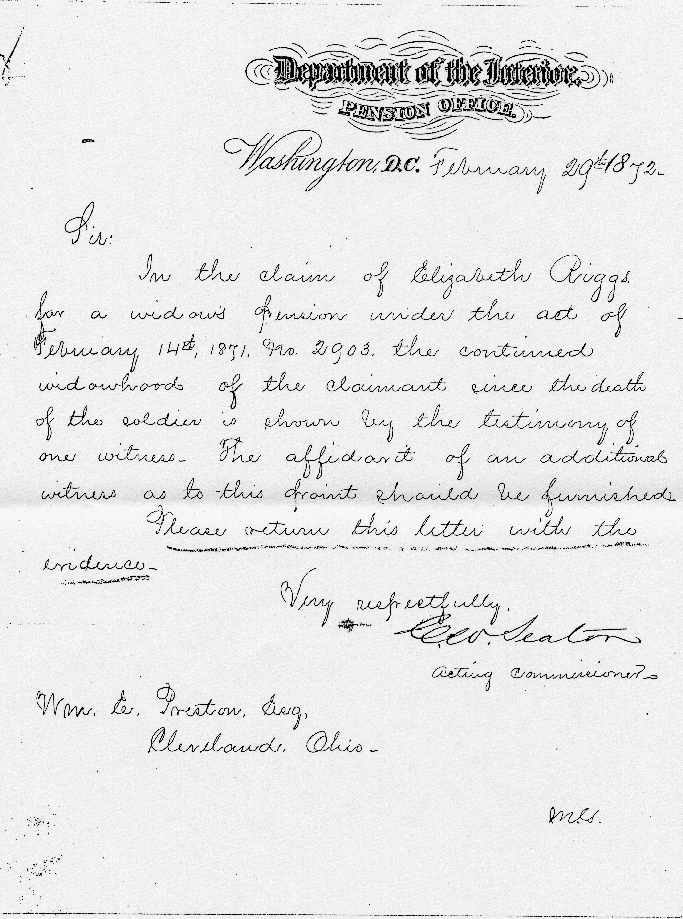 Department of the Interior,
PENSION OFFICE.
Washington, D.C. February 29th 1872.
Sir:
In the claim of Elizabeth Riggs
for a widow's pension under the act of
February 14th, 1871, No. 2903, the continued
widowhood of the claimant since the death
of the soldier is shown by the testimony of
one witness. The affidavit of an additional
witness as to this point should be furnished
Please return this letter with the
evidence.
Very respectfully,
Seaton
Acting Commissioner.
Wm. E. Preston, Esq,
Cleveland, Ohio.